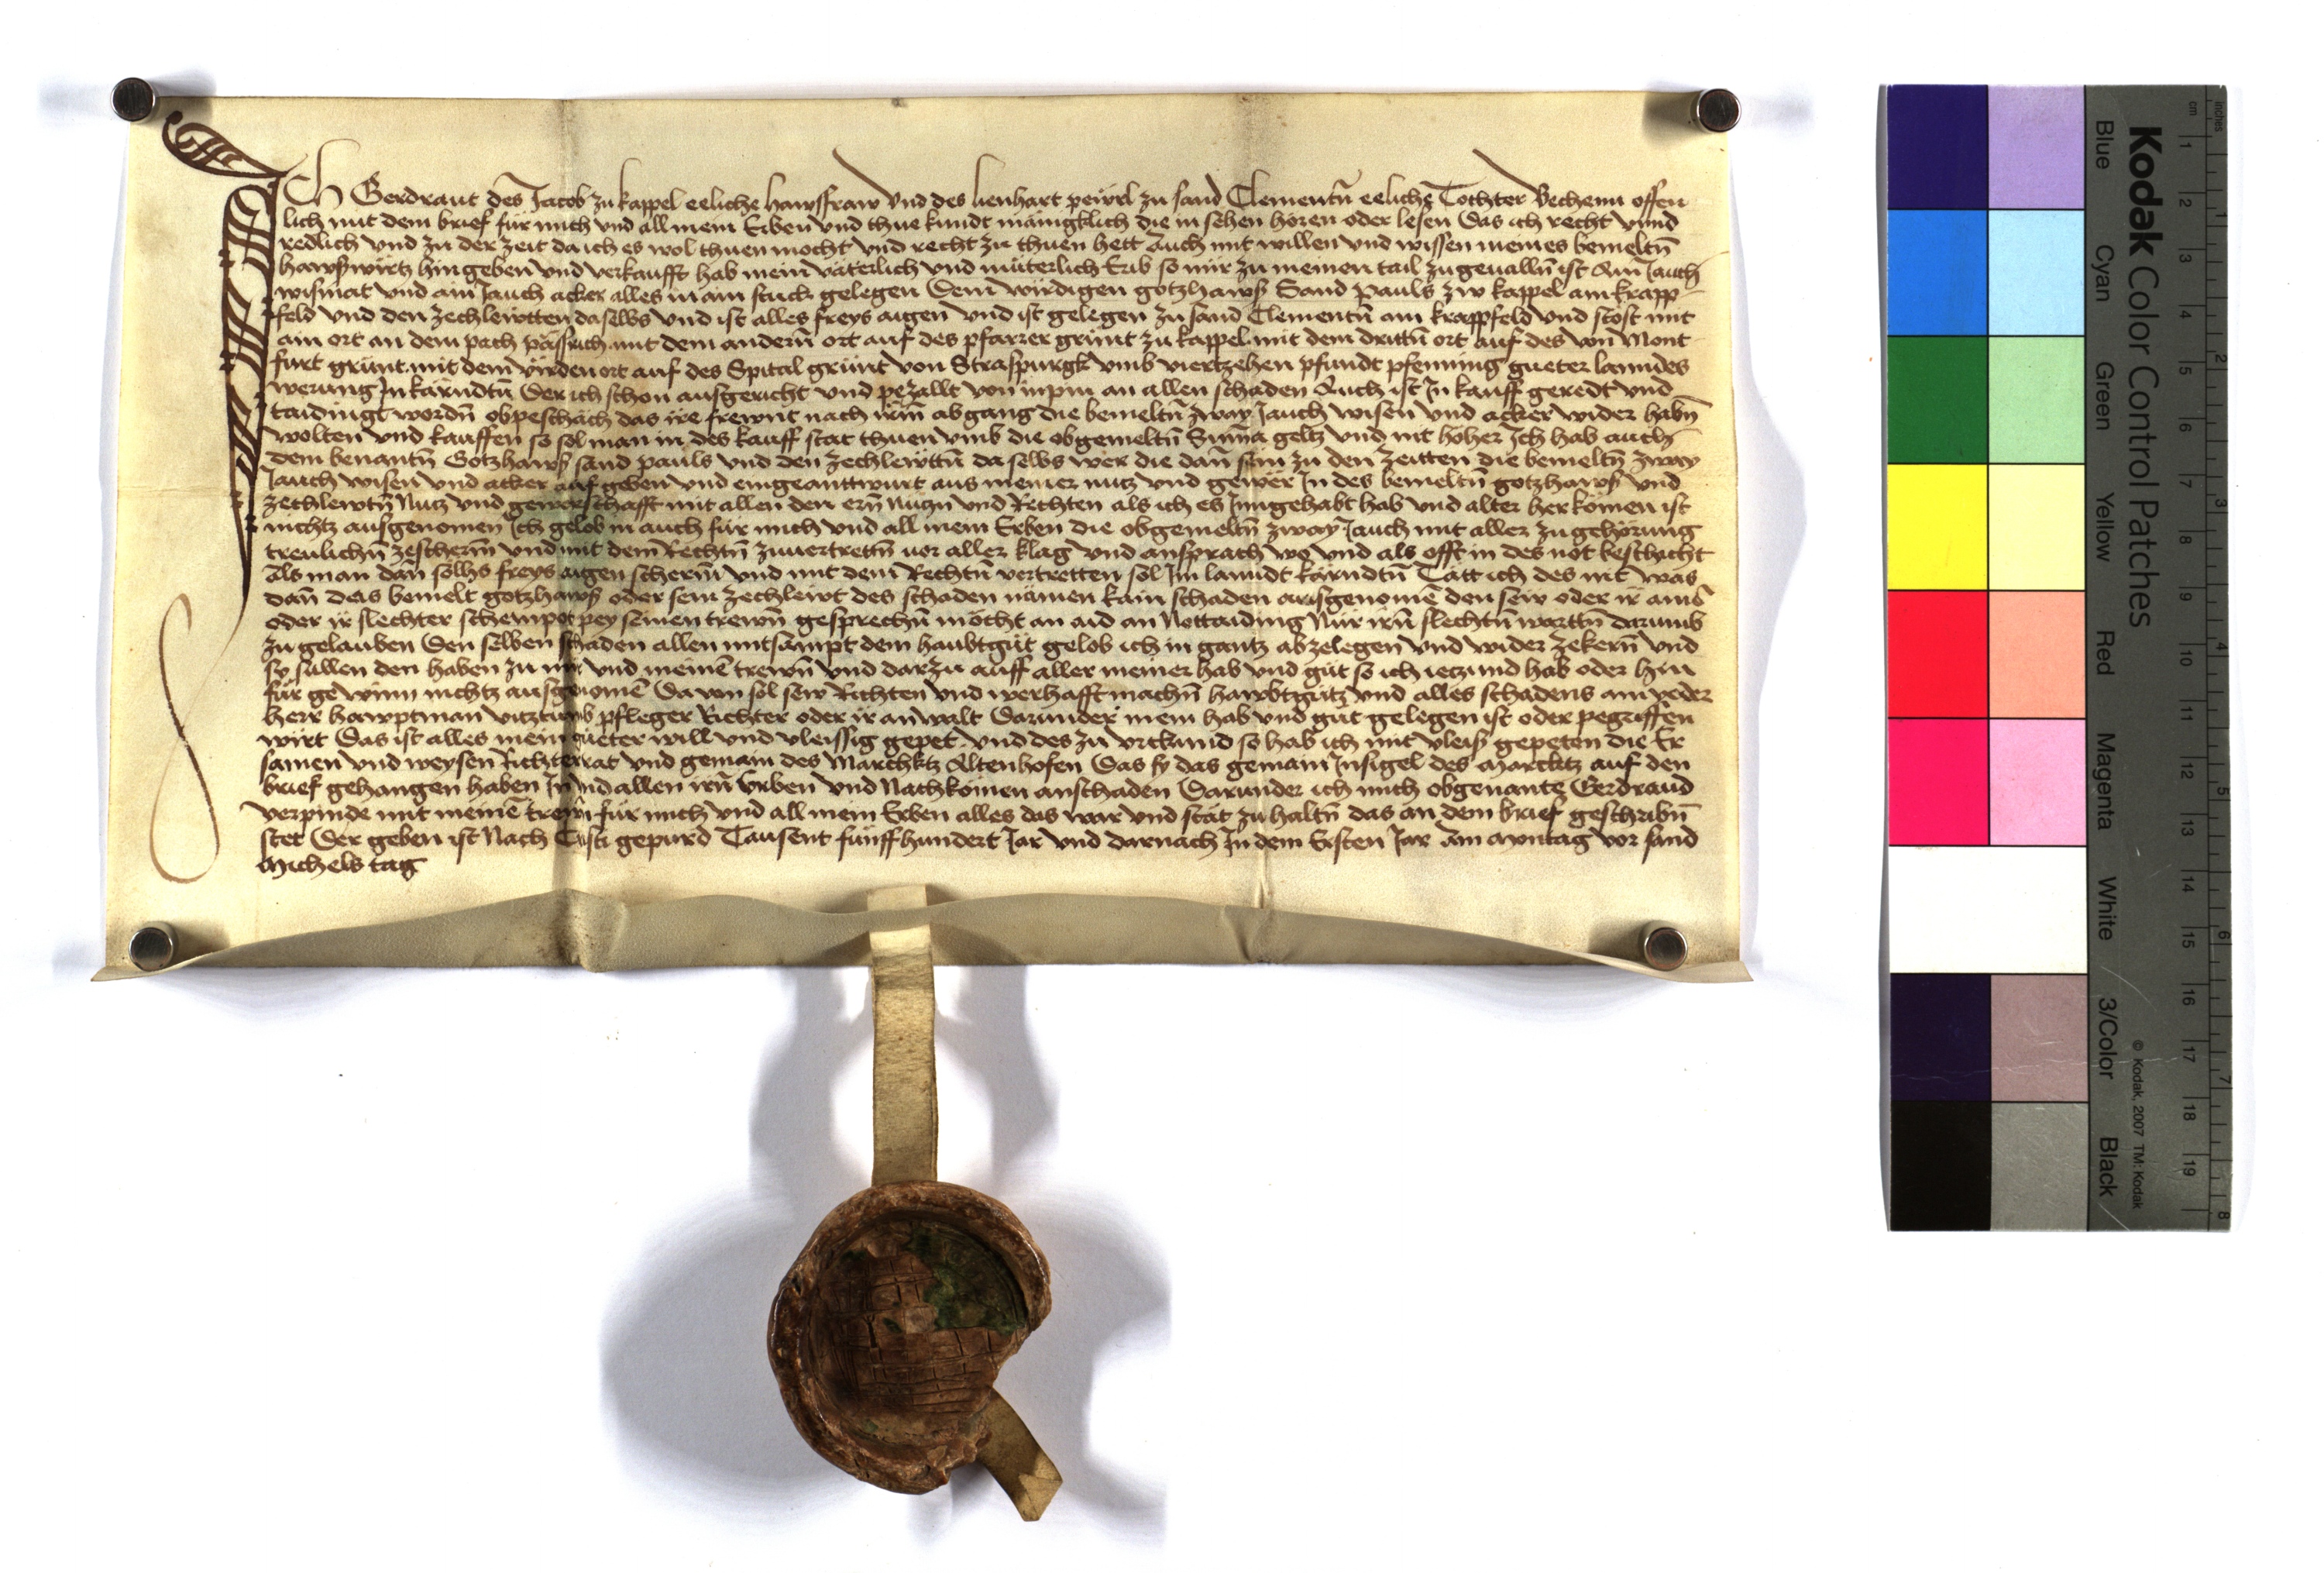 Ich Gerdraut des Jacob zu kappel eeliche hawsfraw vnd des lienhart peurl zu sand Clementn̄ eeliche Tochter Bechenn offen
lich mit dem brief für mich vnd all mein Erben vnd thue kundt mänigklich die in sehen horen oder lesen Das ich recht vnnd
redlich vnd zu der zeit da ich es wol thuen mocht vnd recht zu thuen hett Auch mit willen vnd wissen meines bemeltn̄
hawswirtz hin geben vnd verkaufft hab mein väterlich vnd müterlich Erib so mir zu meinen tail zugeualln̄ ist Ain Jauch
wismat vnd ain Jauch acker alles in ain stuck gelegen Dem wirdigen gotzhaws Sand Pauls zw kappel am krapp
feld vnd den zechlewtten daselbs vnd ist alles freys aigen vnd ist gelegen zu sand Clementn̄ am krappfeld vnd stost mit
ain ort an dem pach mit dem andern̄ ort auf des pfarrer grunt zu kappel mit dem drittn̄ ort auf des von Mont
furt grünt mit dem virden ort auf des Spital grünt von Straspurgk vmb viertzehen pfundt pfenning gueter lanndes
werung In kärndtn̄ Der ich schon ausgericht vnd pezallt von inn pin an allen schaden Auch ist In kauff geredt vnd
taidingt wordn̄ ob peschäch das ire frewnt nach irm̄ abgang die bemeltn̄ zway Jauch wisen vnd acker wider habn̄
wolten vnd kauffen so sol man in des kauff stat thuen vmb die obgemeltn̄ Suma geltz vnd nit höher Ich hab auch
dem benantn̄ Gotzhaws sand pauls vnd den zechlewttn̄ da selbs wer die dan̄ sein zu den zeitten die bemeltn̄ zway
Jauch wisen vnd acker auf geben vnd eingeanttwurt aus meiner nutz vnd gewer In des bemeltn̄ gotzhaws vnd
zechlewtn̄ Nutz vnd gewerschafft mit allen den ern̄ Nutzn̄ vnd Rechten als ich es Inngehabt hab vnd alter herkomen ist
nichtz ausgenomen Ich gelob in auch für mich vnd all mein Erben die obgemeltn̄ zway Jauch mit aller zugehörung
treulichn̄ zescherm̄ vnd mit dem Rechtn̄ zuuertretn̄ vor aller klag vnd ansprach wo vnd als offt in des not beschicht
Als man dan̄ solhs freys aigen scherm̄ vnd mit dem Rechtn̄ vertretten sol Im lanndt kärndtn̄ Tätt ich des nit was
dan̄ das bemelt gotzhaws oder sein zechlewt des schaden nämen kain schaden ausgenomē den sew oder ir ains
oder ir slechter schempot pey seinen trewn̄ gesprechn̄ möcht an aid an Nottaiding Nur irn̄ slechtn̄ worttn̄ darumb
zu gelauben Den selben schaden allen mitsampt dem haubtgüt gelob ich in gantz abzelegen vnd wider zekern̄ vnd
sy sullen den haben zu mir vnd meinē trewn̄ vnd darzu auff aller meiner hab vnd güt so ich ietzund hab oder hin
für gewinn nichtz ausgenomē Da von sol sew Richten vnd werhafft machn̄ hawbtgütz vnd alles schadens ain yeder
herr hawptman vitztumb pfleger Richter oder ir anwalt Darunder mein hab vnd güt gelegen ist oder pegriffen
wirt Das ist alles mein gueter will vnd vleissig gepet vnd des zu vrkund so hab ich mit vleis gepeten die Er
samen vnd weysen Richter rat vnd gemain des Marchktz Altenhofen Das sy das gemain Insigel des Marcktz auf den
brief gehangen haben In vnd allen irn̄ Erben vnd Nachkomen anschaden Darunder ich mich obgenante Gerdraud
verpinde mit meinē trewn̄ für mich vnd all mein Erben alles das war vnd stät zu haltn̄ das an dem brief geschribn̄
stet Der geben ist Nach Cristi gepurd Tausent fünffhundert Jar vnd darnach In dem Ersten Jar Am Montag vor sand
Michels tag
Kodak Color Control Patches
Blue Cyan Green Yellow Red Magenta White 3/Color Black
© Kodak, 2007 TM: Kodak
cm 1 2 3 4 5 6 7 8 9 10 11 12 13 14 15 16 17 18 19
inches 1 2 3 4 5 6 7 8